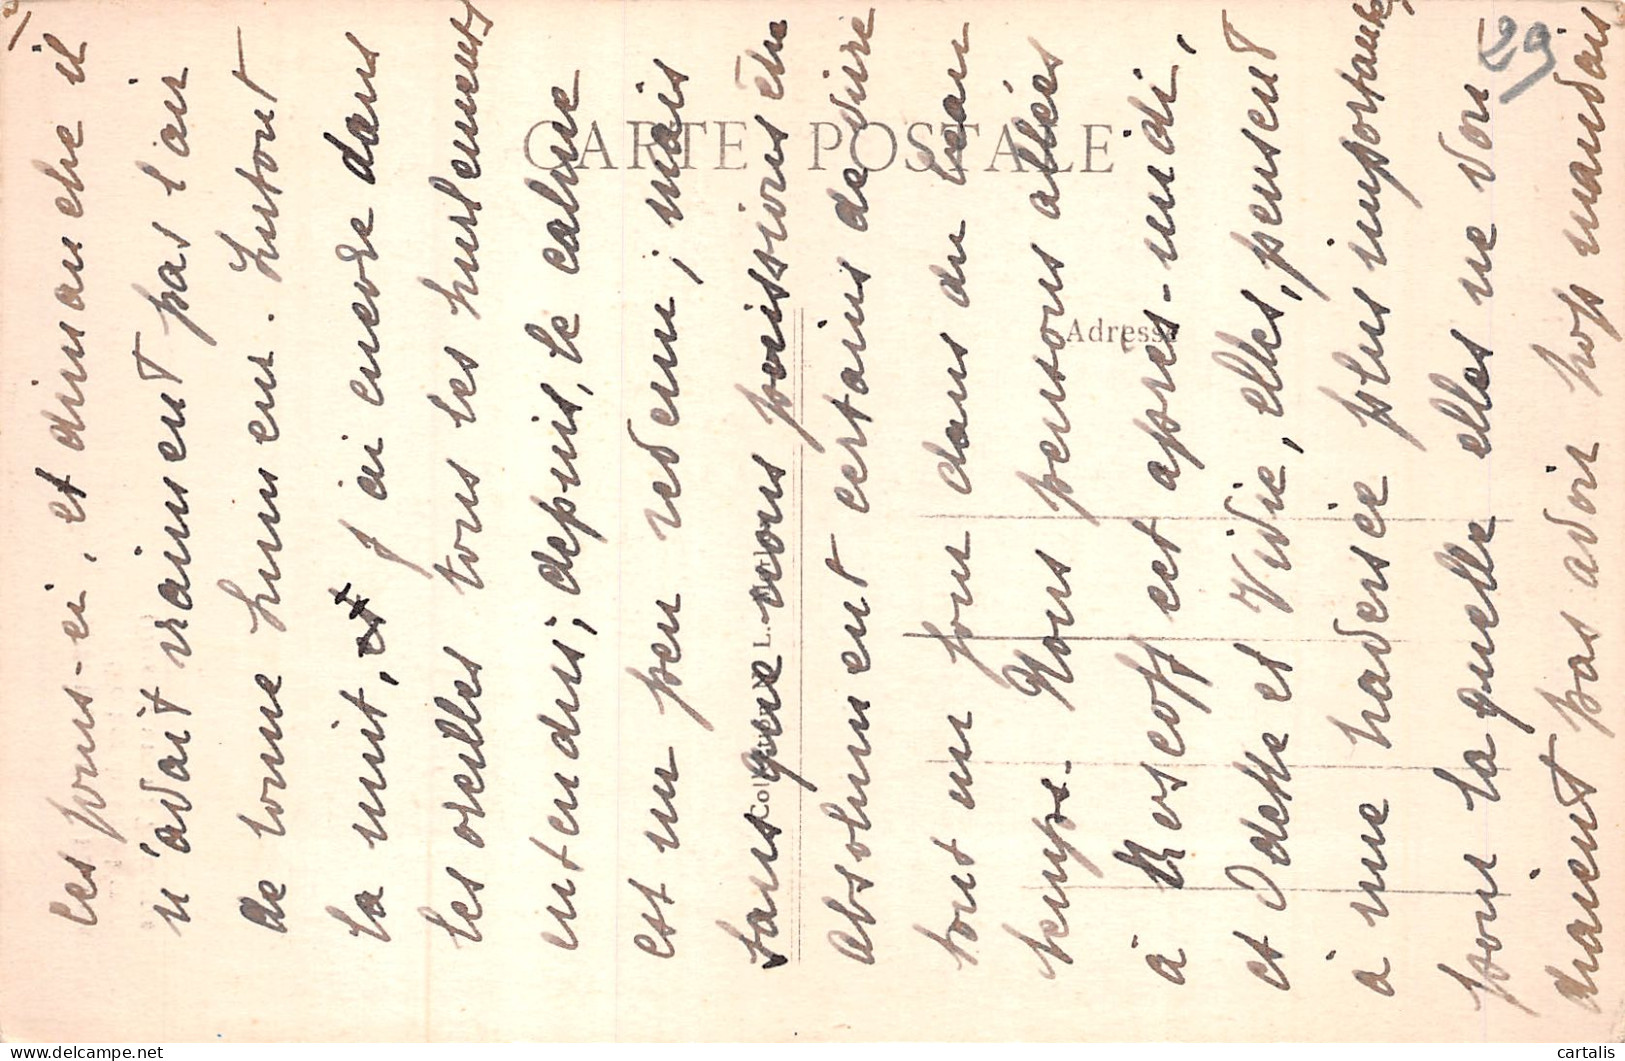 29
CARTE POSTALE
Adresse
les jours-ci, et dimanche il
n'avait vraiment pas l'air
de bonne humeur. Surtout
la nuit, j'ai encore dans
les oreilles tous les hurlements
entendus; depuis, le calme
est un peu revenu; mais
sans que nous puissions être
absolument certains de vivre
tout un jour dans du beau
temps. Nous pensons allées
à Roscoff cet après-midi,
et Odette et Vivie, elles, pensent
à une traversée plus importante
pour laquelle elles ne vou
draient pas avoir trop mauvais
cartalis
delcampe.net